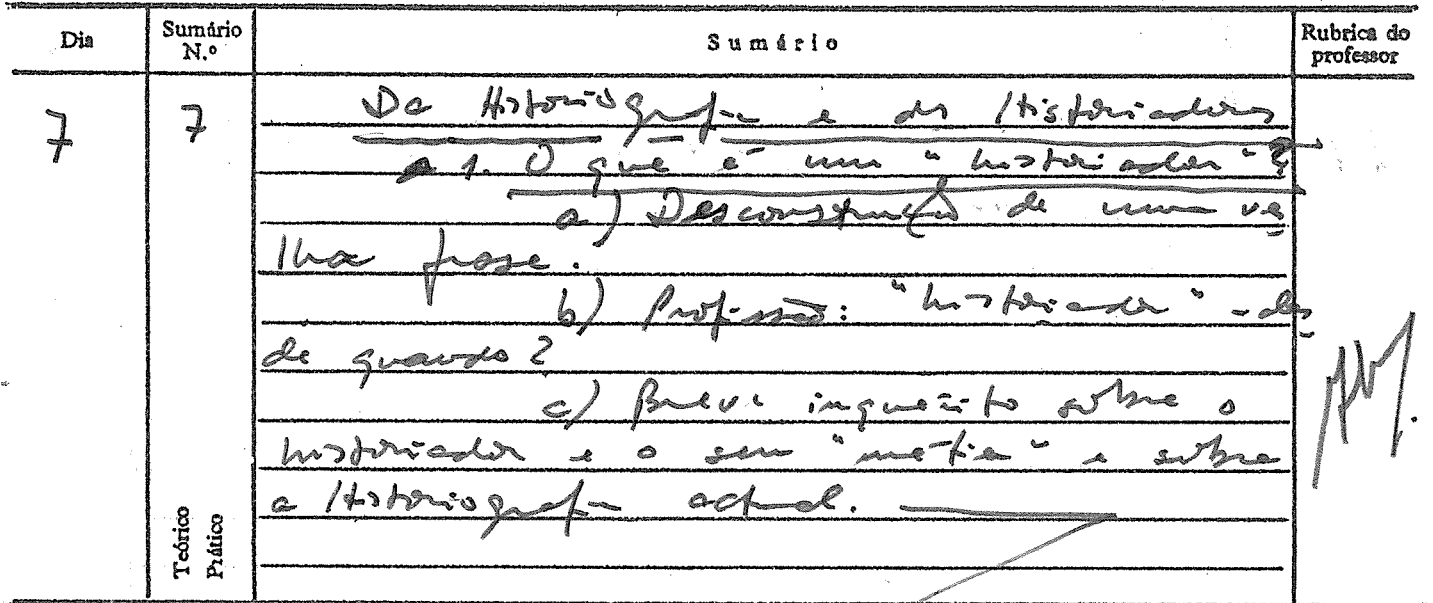 Dia Sumário N.º Sumário Rubrica do professor
7 7 Da Historiografia e dos Historiadores
1. O que é um "historiador"?
a) Desconstrução de uma ve
lha frase.
b) Profissão: "historiador" - des
de quando?
c) Breve inquérito sobre o
historiador e o seu "métier" e sobre
a Historiografia actual.
Teórico
Prático